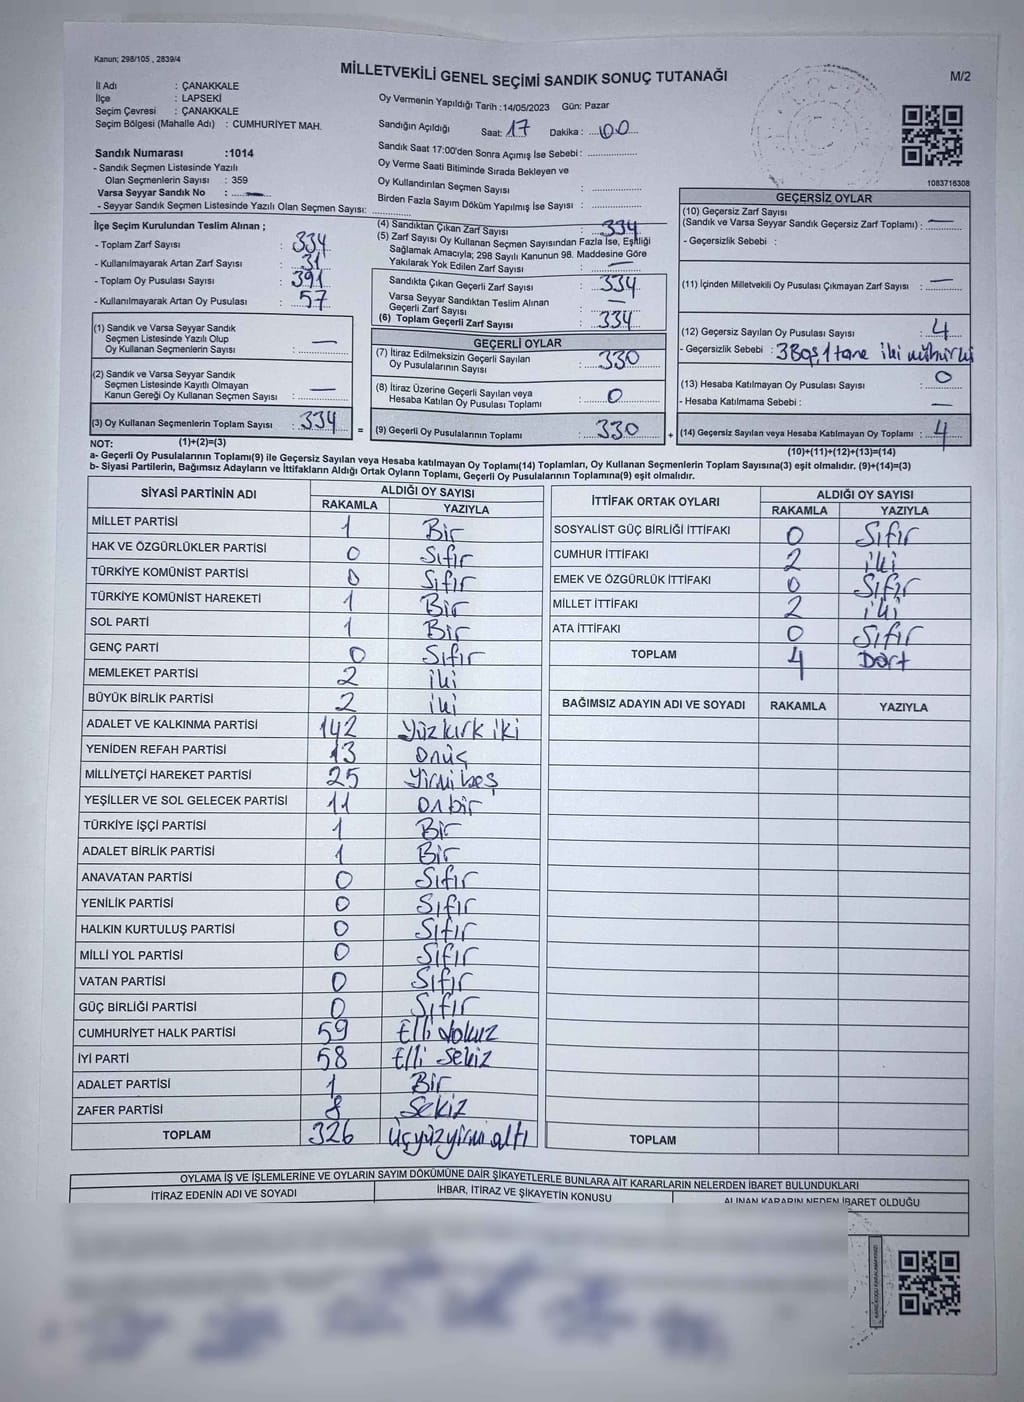 Kanun; 298/105 , 2839/4
MİLLETVEKİLİ GENEL SEÇİMİ SANDIK SONUÇ TUTANAĞI
M/2
İl Adı : ÇANAKKALE
İlçe : LAPSEKİ
Seçim Çevresi : ÇANAKKALE
Seçim Bölgesi (Mahalle Adı) : CUMHURİYET MAH.
Sandık Numarası :1014
- Sandık Seçmen Listesinde Yazılı
Olan Seçmenlerin Sayısı : 359
Varsa Seyyar Sandık No : —
- Seyyar Sandık Seçmen Listesinde Yazılı Olan Seçmen Sayısı:
Oy Vermenin Yapıldığı Tarih :14/05/2023 Gün: Pazar
Sandığın Açıldığı Saat: 17 Dakika : 00
Sandık Saat 17:00'den Sonra Açımış İse Sebebi :
Oy Verme Saati Bitiminde Sırada Bekleyen ve
Oy Kullandırılan Seçmen Sayısı :
Birden Fazla Sayım Döküm Yapılmış İse Sayısı :
1083716308
İlçe Seçim Kurulundan Teslim Alınan ;
- Toplam Zarf Sayısı : 334
- Kullanılmayarak Artan Zarf Sayısı : 31
- Toplam Oy Pusulası Sayısı : 391
- Kullanılmayarak Artan Oy Pusulası : 57
(1) Sandık ve Varsa Seyyar Sandık
Seçmen Listesinde Yazılı Olup
Oy Kullanan Seçmenlerin Sayısı : —
(2) Sandık ve Varsa Seyyar Sandık
Seçmen Listesinde Kayıtlı Olmayan
Kanun Gereği Oy Kullanan Seçmen Sayısı : —
(3) Oy Kullanan Seçmenlerin Toplam Sayısı : 334
(4) Sandıktan Çıkan Zarf Sayısı : 334
(5) Zarf Sayısı Oy Kullanan Seçmen Sayısından Fazla İse, Eşitliği
Sağlamak Amacıyla; 298 Sayılı Kanunun 98. Maddesine Göre
Yakılarak Yok Edilen Zarf Sayısı : —
Sandıkta Çıkan Geçerli Zarf Sayısı : 334
Varsa Seyyar Sandıktan Teslim Alınan
Geçerli Zarf Sayısı : —
(6) Toplam Geçerli Zarf Sayısı : 334
GEÇERLİ OYLAR
(7) İtiraz Edilmeksizin Geçerli Sayılan
Oy Pusulalarının Sayısı : 330
(8) İtiraz Üzerine Geçerli Sayılan veya
Hesaba Katılan Oy Pusulası Toplamı : 0
= (9) Geçerli Oy Pusulalarının Toplamı : 330
GEÇERSİZ OYLAR
(10) Geçersiz Zarf Sayısı
(Sandık ve Varsa Seyyar Sandık Geçersiz Zarf Toplamı) : —
- Geçersizlik Sebebi :
(11) İçinden Milletvekili Oy Pusulası Çıkmayan Zarf Sayısı : —
(12) Geçersiz Sayılan Oy Pusulası Sayısı : 4
- Geçersizlik Sebebi : 3 Boş, 1 tane iki mühürlü
(13) Hesaba Katılmayan Oy Pusulası Sayısı : 0
- Hesaba Katılmama Sebebi : —
+ (14) Geçersiz Sayılan veya Hesaba Katılmayan Oy Toplamı : 4
NOT: (1)+(2)=(3)
(10)+(11)+(12)+(13)=(14)
a- Geçerli Oy Pusulalarının Toplamı(9) ile Geçersiz Sayılan veya Hesaba katılmayan Oy Toplamı(14) Toplamları, Oy Kullanan Seçmenlerin Toplam Sayısına(3) eşit olmalıdır. (9)+(14)=(3)
b- Siyasi Partilerin, Bağımsız Adayların ve İttifakların Aldığı Ortak Oyların Toplamı, Geçerli Oy Pusulalarının Toplamına(9) eşit olmalıdır.
SİYASİ PARTİNİN ADI ALDIĞI OY SAYISI
RAKAMLA YAZIYLA
MİLLET PARTİSİ 1 Bir
HAK VE ÖZGÜRLÜKLER PARTİSİ 0 Sıfır
TÜRKİYE KOMÜNİST PARTİSİ 0 Sıfır
TÜRKİYE KOMÜNİST HAREKETİ 1 Bir
SOL PARTİ 1 Bir
GENÇ PARTİ 0 Sıfır
MEMLEKET PARTİSİ 2 iki
BÜYÜK BİRLİK PARTİSİ 2 iki
ADALET VE KALKINMA PARTİSİ 142 Yüz kırk iki
YENİDEN REFAH PARTİSİ 13 onüç
MİLLİYETÇİ HAREKET PARTİSİ 25 Yirmi beş
YEŞİLLER VE SOL GELECEK PARTİSİ 11 onbir
TÜRKİYE İŞÇİ PARTİSİ 1 Bir
ADALET BİRLİK PARTİSİ 1 Bir
ANAVATAN PARTİSİ 0 Sıfır
YENİLİK PARTİSİ 0 Sıfır
HALKIN KURTULUŞ PARTİSİ 0 Sıfır
MİLLİ YOL PARTİSİ 0 Sıfır
VATAN PARTİSİ 0 Sıfır
GÜÇ BİRLİĞİ PARTİSİ 0 Sıfır
CUMHURİYET HALK PARTİSİ 59 Elli dokuz
İYİ PARTİ 58 Elli sekiz
ADALET PARTİSİ 1 Bir
ZAFER PARTİSİ 8 Sekiz
TOPLAM 326 üçyüzyirmi altı
İTTİFAK ORTAK OYLARI ALDIĞI OY SAYISI
RAKAMLA YAZIYLA
SOSYALİST GÜÇ BİRLİĞİ İTTİFAKI 0 Sıfır
CUMHUR İTTİFAKI 2 iki
EMEK VE ÖZGÜRLÜK İTTİFAKI 0 Sıfır
MİLLET İTTİFAKI 2 iki
ATA İTTİFAKI 0 Sıfır
TOPLAM 4 Dört
BAĞIMSIZ ADAYIN ADI VE SOYADI RAKAMLA YAZIYLA
TOPLAM
OYLAMA İŞ VE İŞLEMLERİNE VE OYLARIN SAYIM DÖKÜMÜNE DAİR ŞİKAYETLERLE BUNLARA AİT KARARLARIN NELERDEN İBARET BULUNDUKLARI
İTİRAZ EDENİN ADI VE SOYADI İHBAR, İTİRAZ VE ŞİKAYETİN KONUSU ALINAN KARARIN NEDEN İBARET OLDUĞU